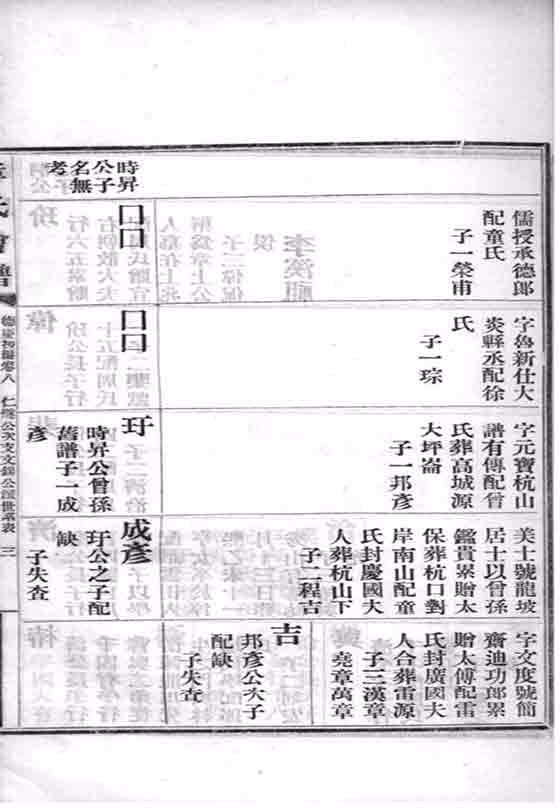 儒授承德郎
配童氏
子一榮甫
口口
時昇
公子
名無
考
字魯新仕大
炎縣丞配徐
氏
子一琮
口口
字元寶杭山
譜有傳配曾
氏葬高城源
大坪崙
子一邦彥
玗
時昇公曾孫
舊譜子一成
彥
美士號龍坡
居士以曾孫
鑑貴累贈太
保葬杭口對
岸南山配童
氏封慶國夫
人葬杭山下
子二程吉
成彥
玗公之子配
缺
子失查
字文度號簡
齋迪功郎累
贈太傅配雷
氏封廣國夫
人合葬雷源
子三漢章
堯章萬章
吉
邦彥公次子
配缺
子失查
氏會譜
德慶初編卷八
公次支文錦公派世系表
三